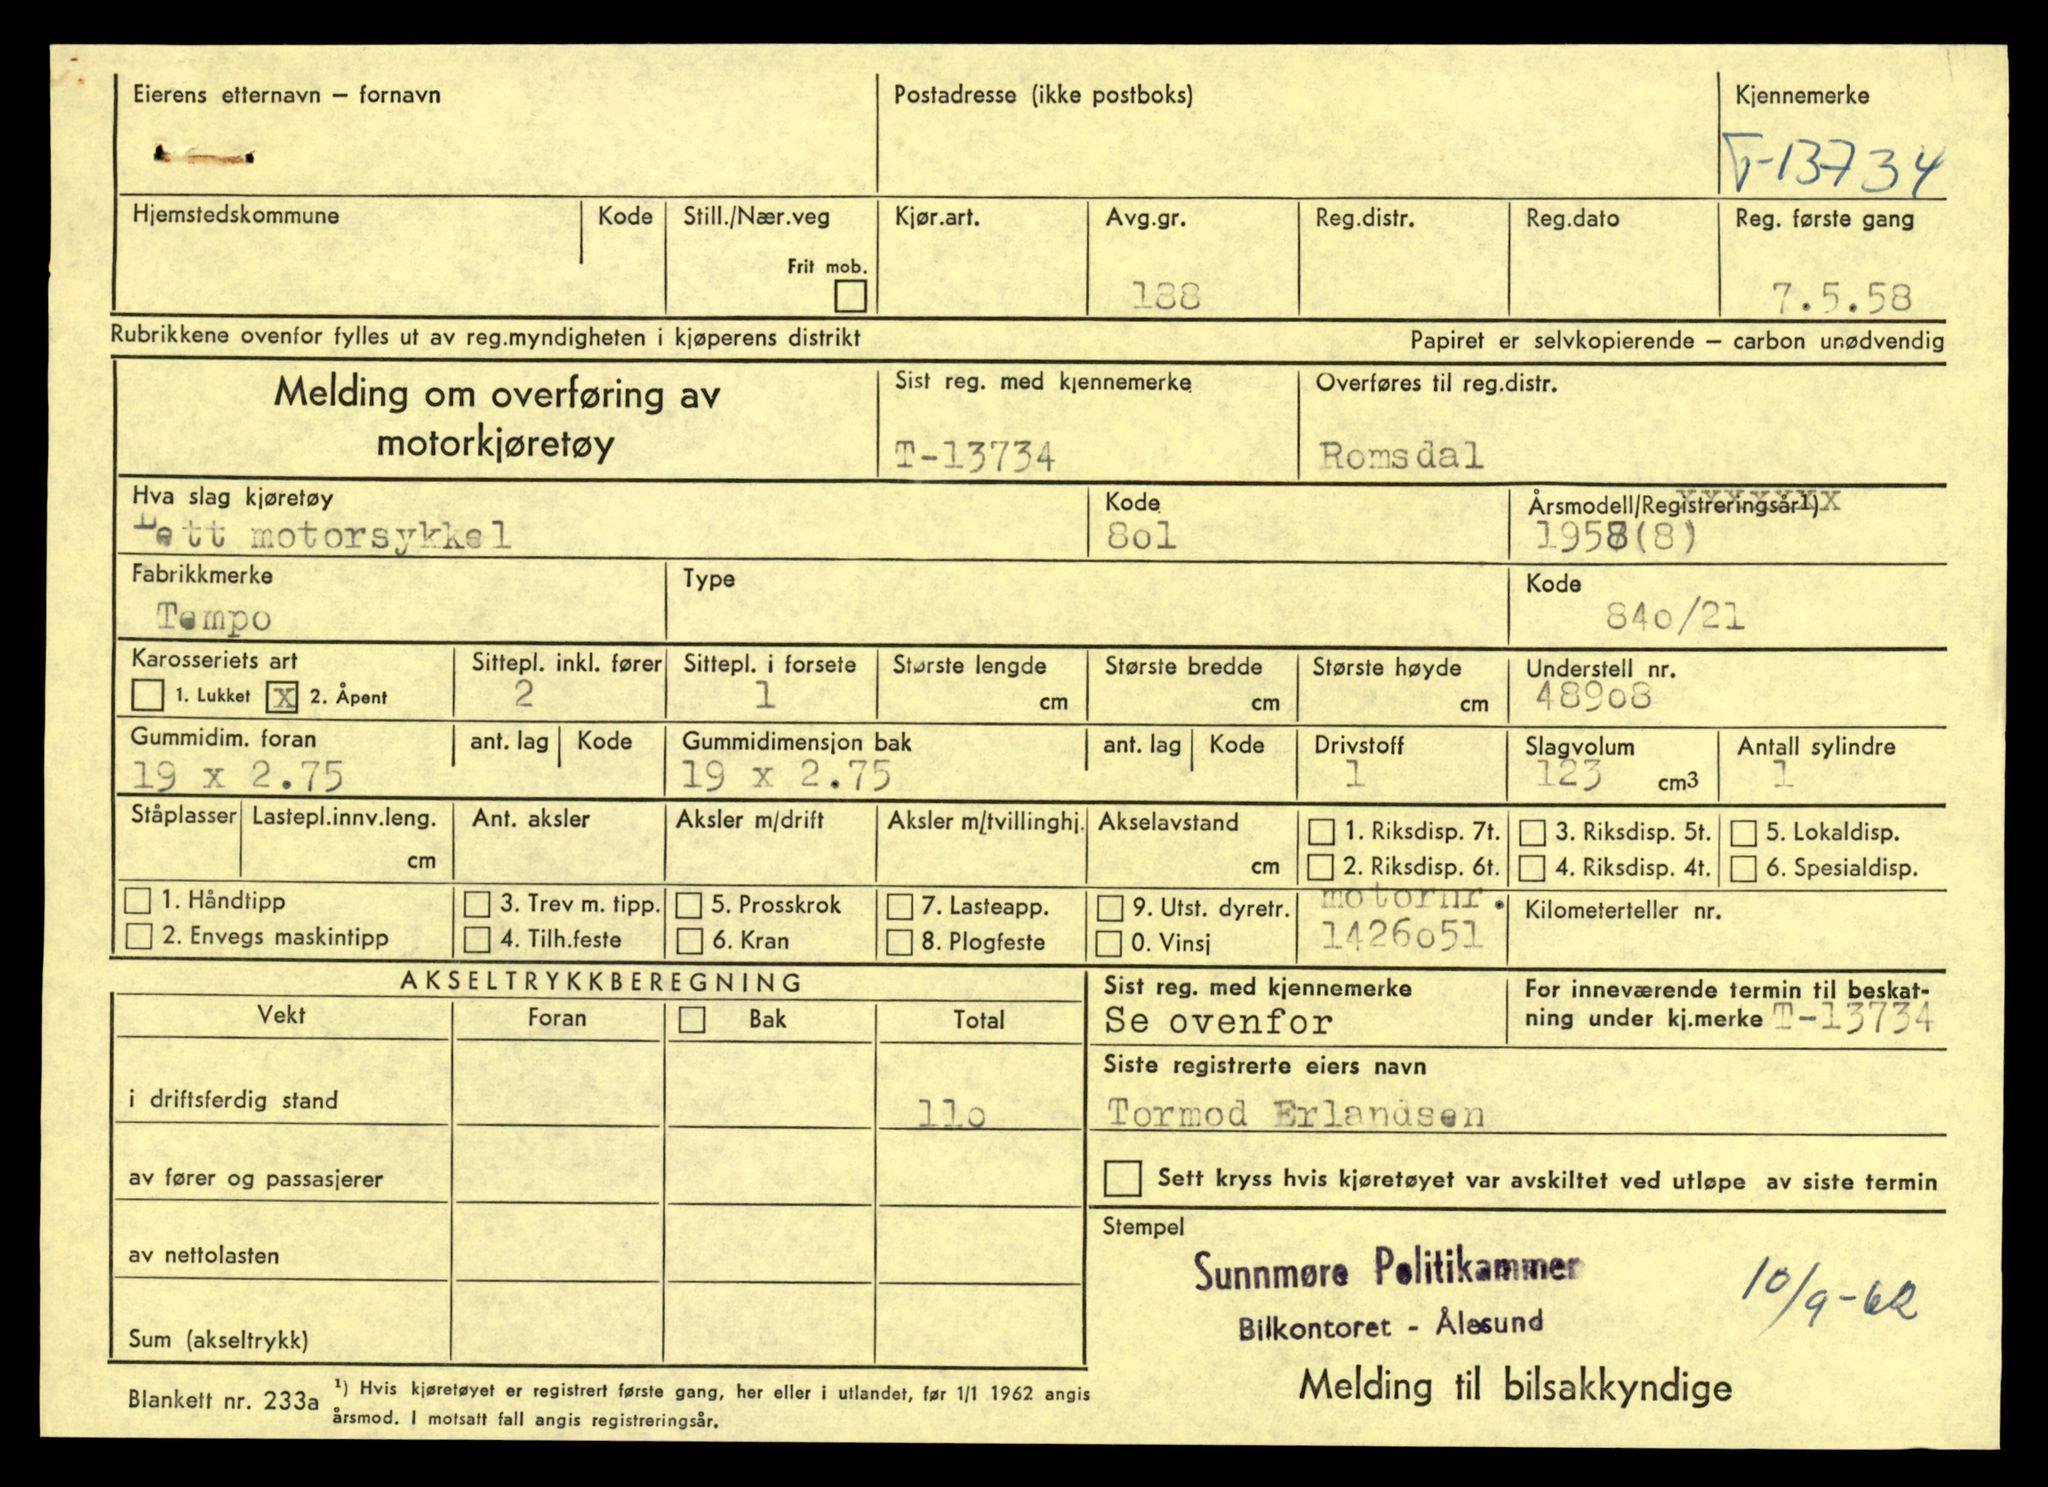 Eierens etternavn – fornavn
Postadresse (ikke postboks)
Kjennemerke
T-13734
Hjemstedskommune
Kode
Still./Nær.veg
Frit mob.
Kjør.art.
Avg.gr.
188
Reg.distr.
Reg.dato
Reg. første gang
7.5.58
Rubrikkene ovenfor fylles ut av reg.myndigheten i kjøperens distrikt
Papiret er selvkopierende – carbon unødvendig
Melding om overføring av
motorkjøretøy
Sist reg. med kjennemerke
T-13734
Overføres til reg.distr.
Romsdal
Hva slag kjøretøy
Lett motorsykkel
Kode
8o1
Årsmodell/Registreringsår1)
1958(8)
Fabrikkmerke
Tempo
Type
Kode
84o/21
Karosseriets art
1. Lukket X 2. Åpent
Sittepl. inkl. fører
2
Sittepl. i forsete
1
Største lengde
cm
Største bredde
cm
Største høyde
cm
Understell nr.
489o8
Gummidim. foran
19 x 2.75
ant. lag
Kode
Gummidimensjon bak
19 x 2.75
ant. lag
Kode
Drivstoff
1
Slagvolum
123 cm3
Antall sylindre
1
Ståplasser
Lastepl.innv.leng.
cm
Ant. aksler
Aksler m/drift
Aksler m/tvillinghj.
Akselavstand
cm
1. Riksdisp. 7t.
2. Riksdisp. 6t.
3. Riksdisp. 5t.
4. Riksdisp. 4t.
5. Lokaldisp.
6. Spesialdisp.
1. Håndtipp
2. Envegs maskintipp
3. Trev m. tipp.
4. Tilh.feste
5. Prosskrok
6. Kran
7. Lasteapp.
8. Plogfeste
9. Utst. dyretr.
0. Vinsj
motornr.
1426o51
Kilometerteller nr.
AKSELTRYKKBEREGNING
Vekt
Foran
Bak
Total
i driftsferdig stand
11o
av fører og passasjerer
av nettolasten
Sum (akseltrykk)
Sist reg. med kjennemerke
Se ovenfor
For inneværende termin til beskat-
ning under kj.merke T-13734
Siste registrerte eiers navn
Tormod Erlandsen
Sett kryss hvis kjøretøyet var avskiltet ved utløpe av siste termin
Stempel
Sunnmøre Politikammer
Bilkontoret - Ålesund
10/9-62
Melding til bilsakkyndige
Blankett nr. 233a
1) Hvis kjøretøyet er registrert første gang, her eller i utlandet, før 1/1 1962 angis
årsmod. I motsatt fall angis registreringsår.